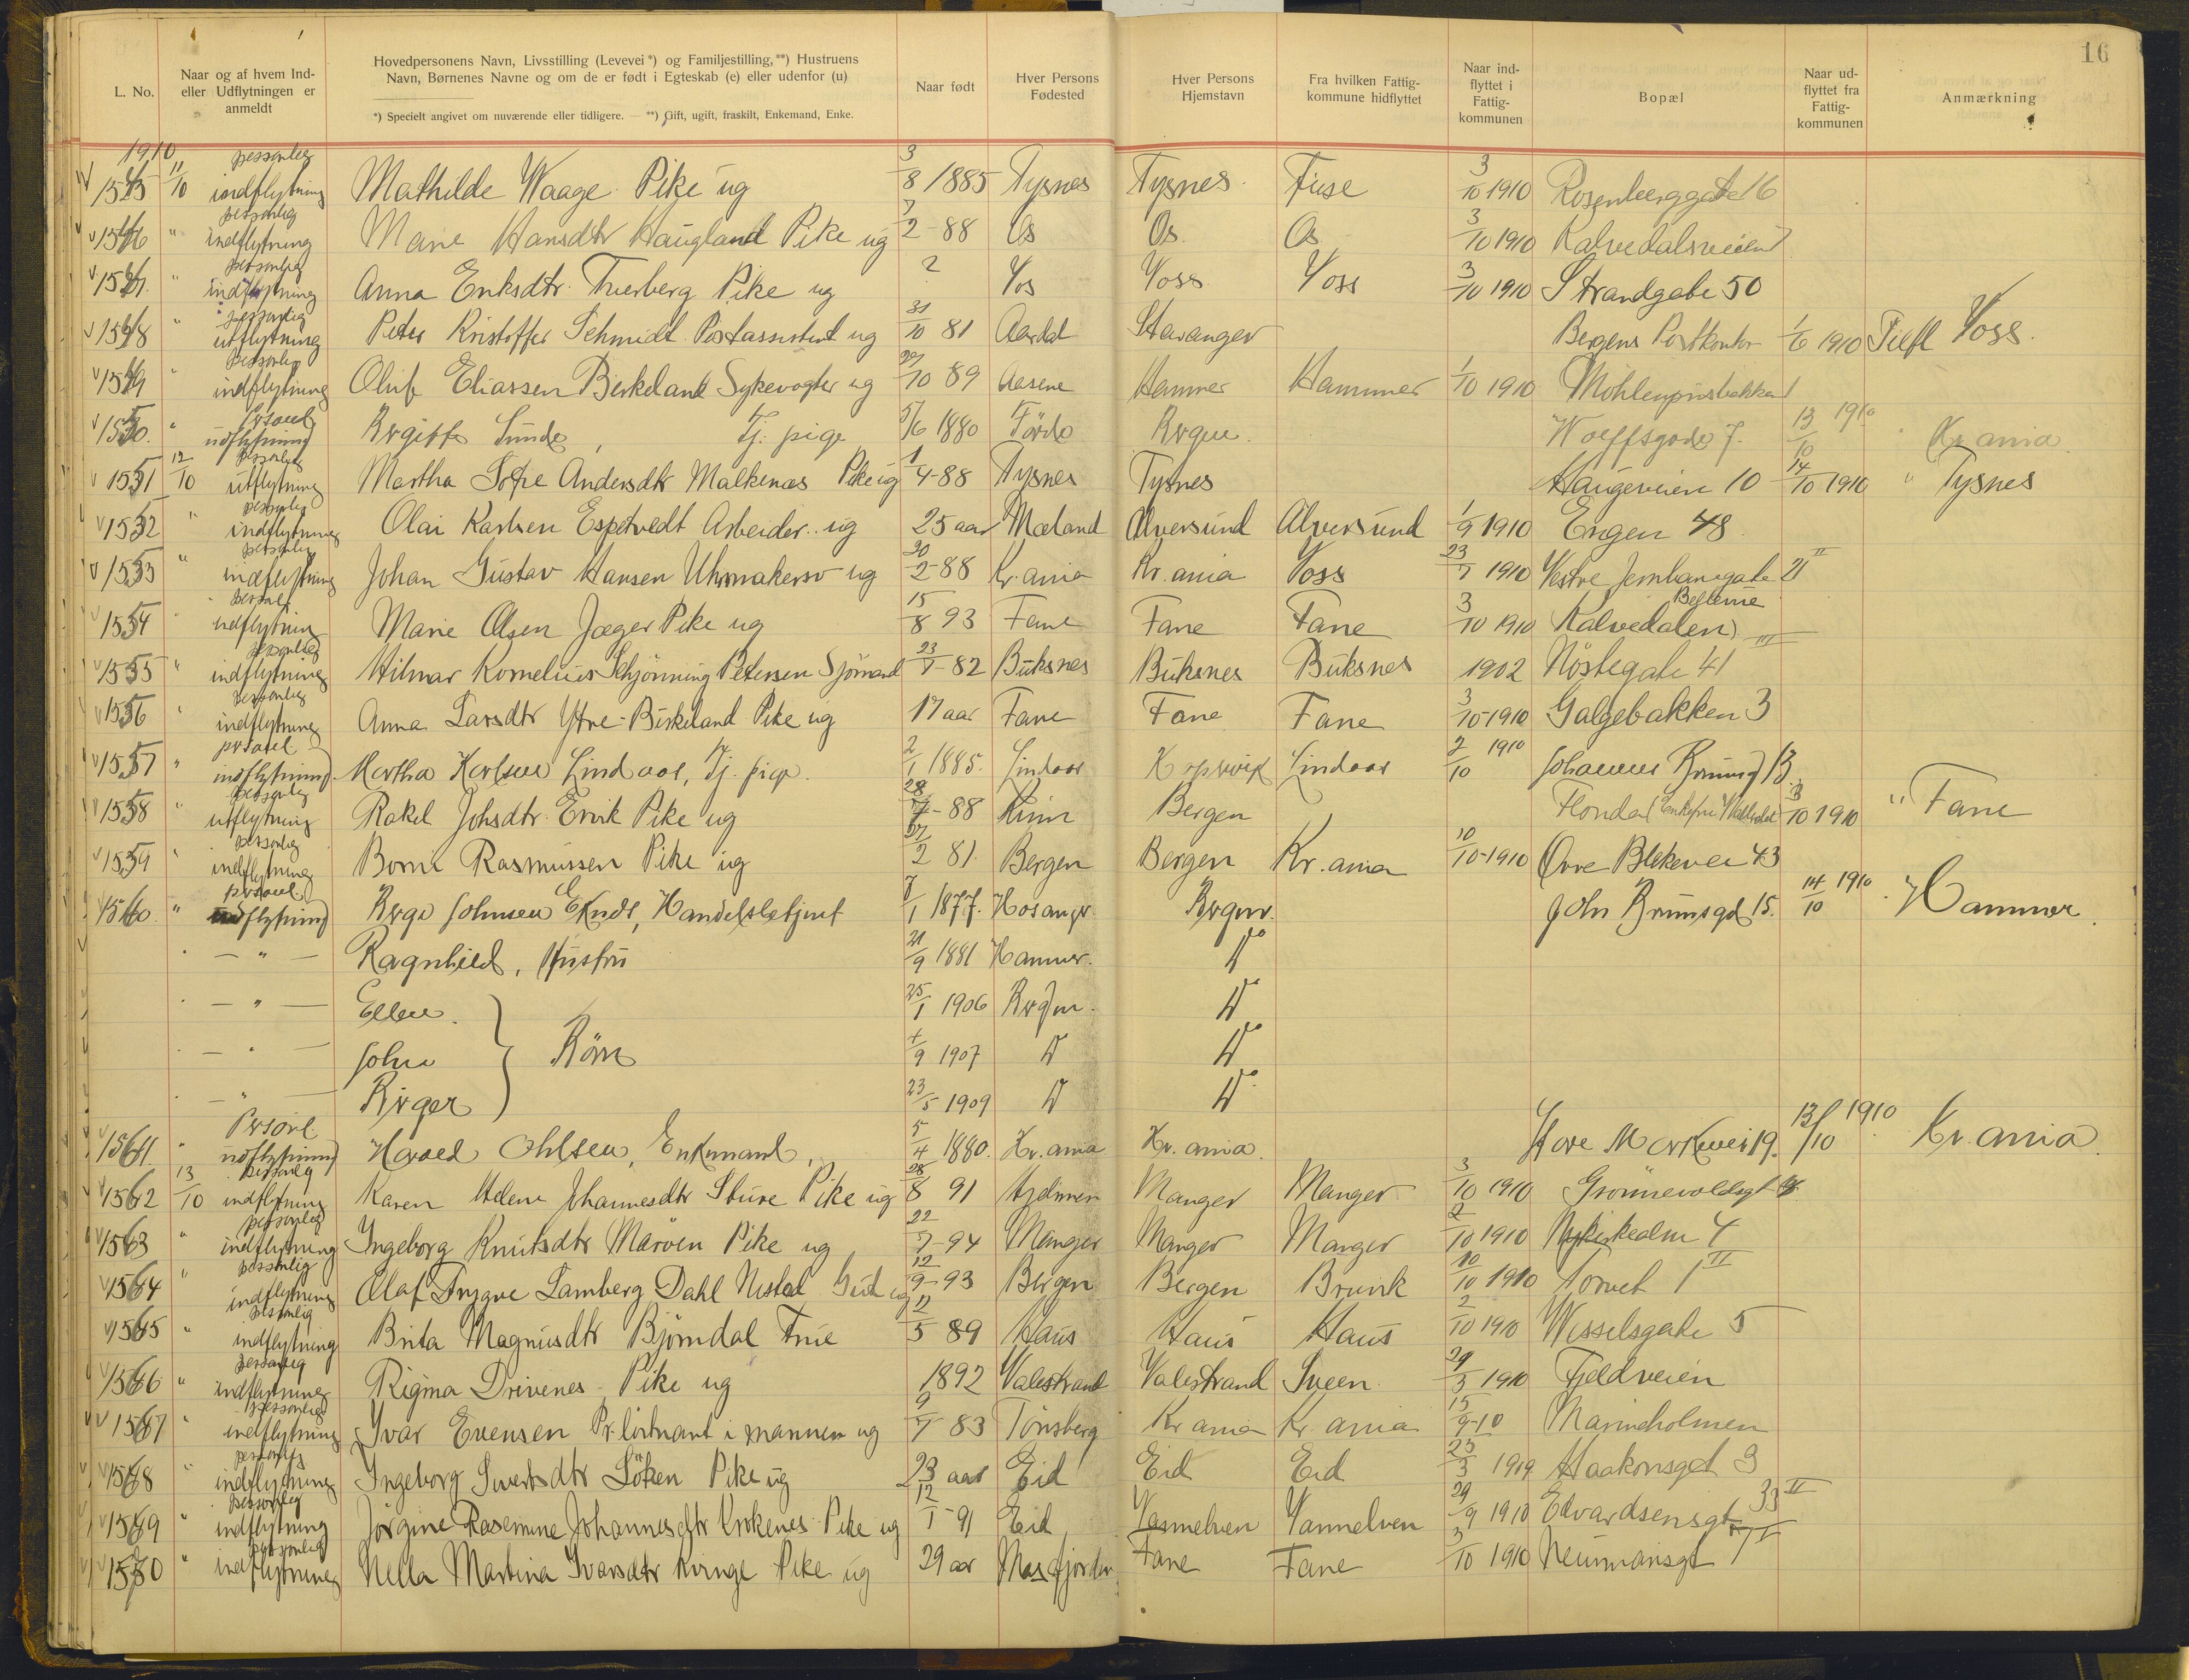 16
L. No.
Naar og af hvem Ind-
eller Udflytningen er
anmeldt
Hovedpersonens Navn, Livsstilling (Levevei *) og Familjestilling, **) Hustruens
Navn, Børnenes Navne og om de er født i Egteskab (e) eller udenfor (u)
*) Specielt angivet om nuværende eller tidligere. — **) Gift, ugift, fraskilt, Enkemand, Enke.
Naar født
Hver Persons
Fødested
Hver Persons
Hjemstavn
Fra hvilken Fattig-
kommune hidflyttet
Naar ind-
flyttet i
Fattig-
kommunen
Bopæl
Naar ud-
flyttet fra
Fattig-
kommunen
Anmærkning
1910
1545 11/10 personlig indflytning Mathilde Waage Pike ug 3/8 1885 Tysnes Tysnes Fuse 3/10 1910 Rosenberggate 16
1546 " personlig indflytning Marie Hansdtr Haugland Pike ug 7/2 - 88 Os Os Os 3/10 1910 Kalvedalsveien
1547 " personlig indflytning Anna Eriksdtr. Pike ug ? Vos Voss Voss 3/10 1910 Strandgate 50
1548 " personlig utflytning Peter Kristoffer Schmidt Postassistent ug 31/10 81 Aardal Stavanger Bergens Postkontor 1/6 1910 Tilfl Voss.
1549 " personlig indflytning Oluf Eliassen Birkeland Sykevogter ug 10 89 Aasene Hammer Hammer 1/10 1910
1550. " udflytning Birgitte Sunde, Tj. pige 5/6 1880 Førde Bergen. 7. 13/10 1910 " Kr.ania
1551 12/10 personlig utflytning Martha Andersdtr Malkenes Pike ug 1/4 - 88 Tysnes Tysnes Haugeveien 10 14/10 1910 " Tysnes
1552 " personlig indflytning Olai Karlsen Espetvedt Arbeider.. ug 25 aar Mæland Alversund Alversund 1/9 1910 Engen 48
1553 " personlig indflytning Johan Gustav Hansen Uhrmakersv ug 20/2 - 88 Kr.ania Kr.ania Voss 23/7 1910 Vestre Jernbanegate 21 II
1554 " indflytning Marie Olsen Jæger Pike ug 15/8 93 Fane Fane Fane 3/10 1910 Kalvedalen
1555 " personlig indflytning Hilmar Kornelius Schjønning Petersen Sjømand 23/1 - 82 Buksnes Buksnes Buksnes 1902 Nöstegate 41 III
1556 " personlig indflytning Anna Larsdtr Ytre-Birkeland Pike ug 17 aar Fane Fane Fane 3/10 - 1910 Galgebakken 3
1557 " indflytning Martha Karlsen Lindaas, Tj. pige. 2/1 1885. Lindaas Lindaas 2/10 1910 Johannes 13
1558 " personlig utflytning Rakel Johsdtr. Ervik Pike ug 28/7 - 88 Kinn Bergen Florida 13/10 1910 " Fane
1559 " personlig indflytning Rasmussen Pike ug 27/2 81. Bergen Bergen Kr.ania 10/10 - 1910 Øvre Blekevei 43
1560. " udflytning Johnsen Handelsbetjent 7/1 1877. Hosanger Bergen. John Brunsgd 15. 14/10 1910 . Hammer.
" — Ragnhild, Hustru 21/9 1881 Hammer. Do
" — Ellen. 25/1 1906 Bergen. Do
" — John } Börn 4/9 1907 Do Do
" — Birger 23/5 1909 Do Do
1561 " udflytning Harald Ohlsen, Enkemand, 5/4 1880. Kr.ania Kr.ania. 19. 13/10 1910 Kr.ania.
1562 13/10 personlig indflytning Karen Helene Johannesdtr Sture Pike ug 28/8 91 Hjelmen Manger Manger 3/10 1910 Grönnevoldsgt
1563 " personlig indflytning Ingeborg Knutsdtr Maröen Pike ug 22/7 - 94 Manger Manger Manger 2/10 1910 Nykirkealm 4
1564 " personlig indflytning Olaf Trygve Lamberg Dahl Nistad ug 12/9 - 93 Bergen Bergen Bruvik 10/10 1910 Torvet 1 II
1565 " personlig indflytning Brita Magnusdtr Björndal Frue 12/5 89 Haus Haus Haus 2/10 1910 Wesselsgate 5
1566 " personlig indflytning Rigma Drivenes - Pike ug 1892 Valestrand Valestrand Sveen. 29/3 1910 Fjeldveien
1567 " personlig indflytning Ivar Evensen Pr.löitnant i marinen ug 9/7 83 Tönsberg Kr ania Kr ania 15/9 - 10 Marineholmen
1568 " personlig indflytning Ingeborg Sivertsdtr Löken Pike ug 23 aar Eid Eid Eid 25/3 1919 Haakonsgd 3
1569 " personlig indflytning Jörgine Rasmine Johannesdtr Pike ug 12/1 - 91 Eid Vannelven Vannelven 29/9 1910 Edvardsensgt 33 II
1570 " personlig indflytning Nella Martina Ivarsdtr Kvinge Pike ug 29 aar Masfjorden Fane Fane 3/10 1910 Neumansgt 7 I